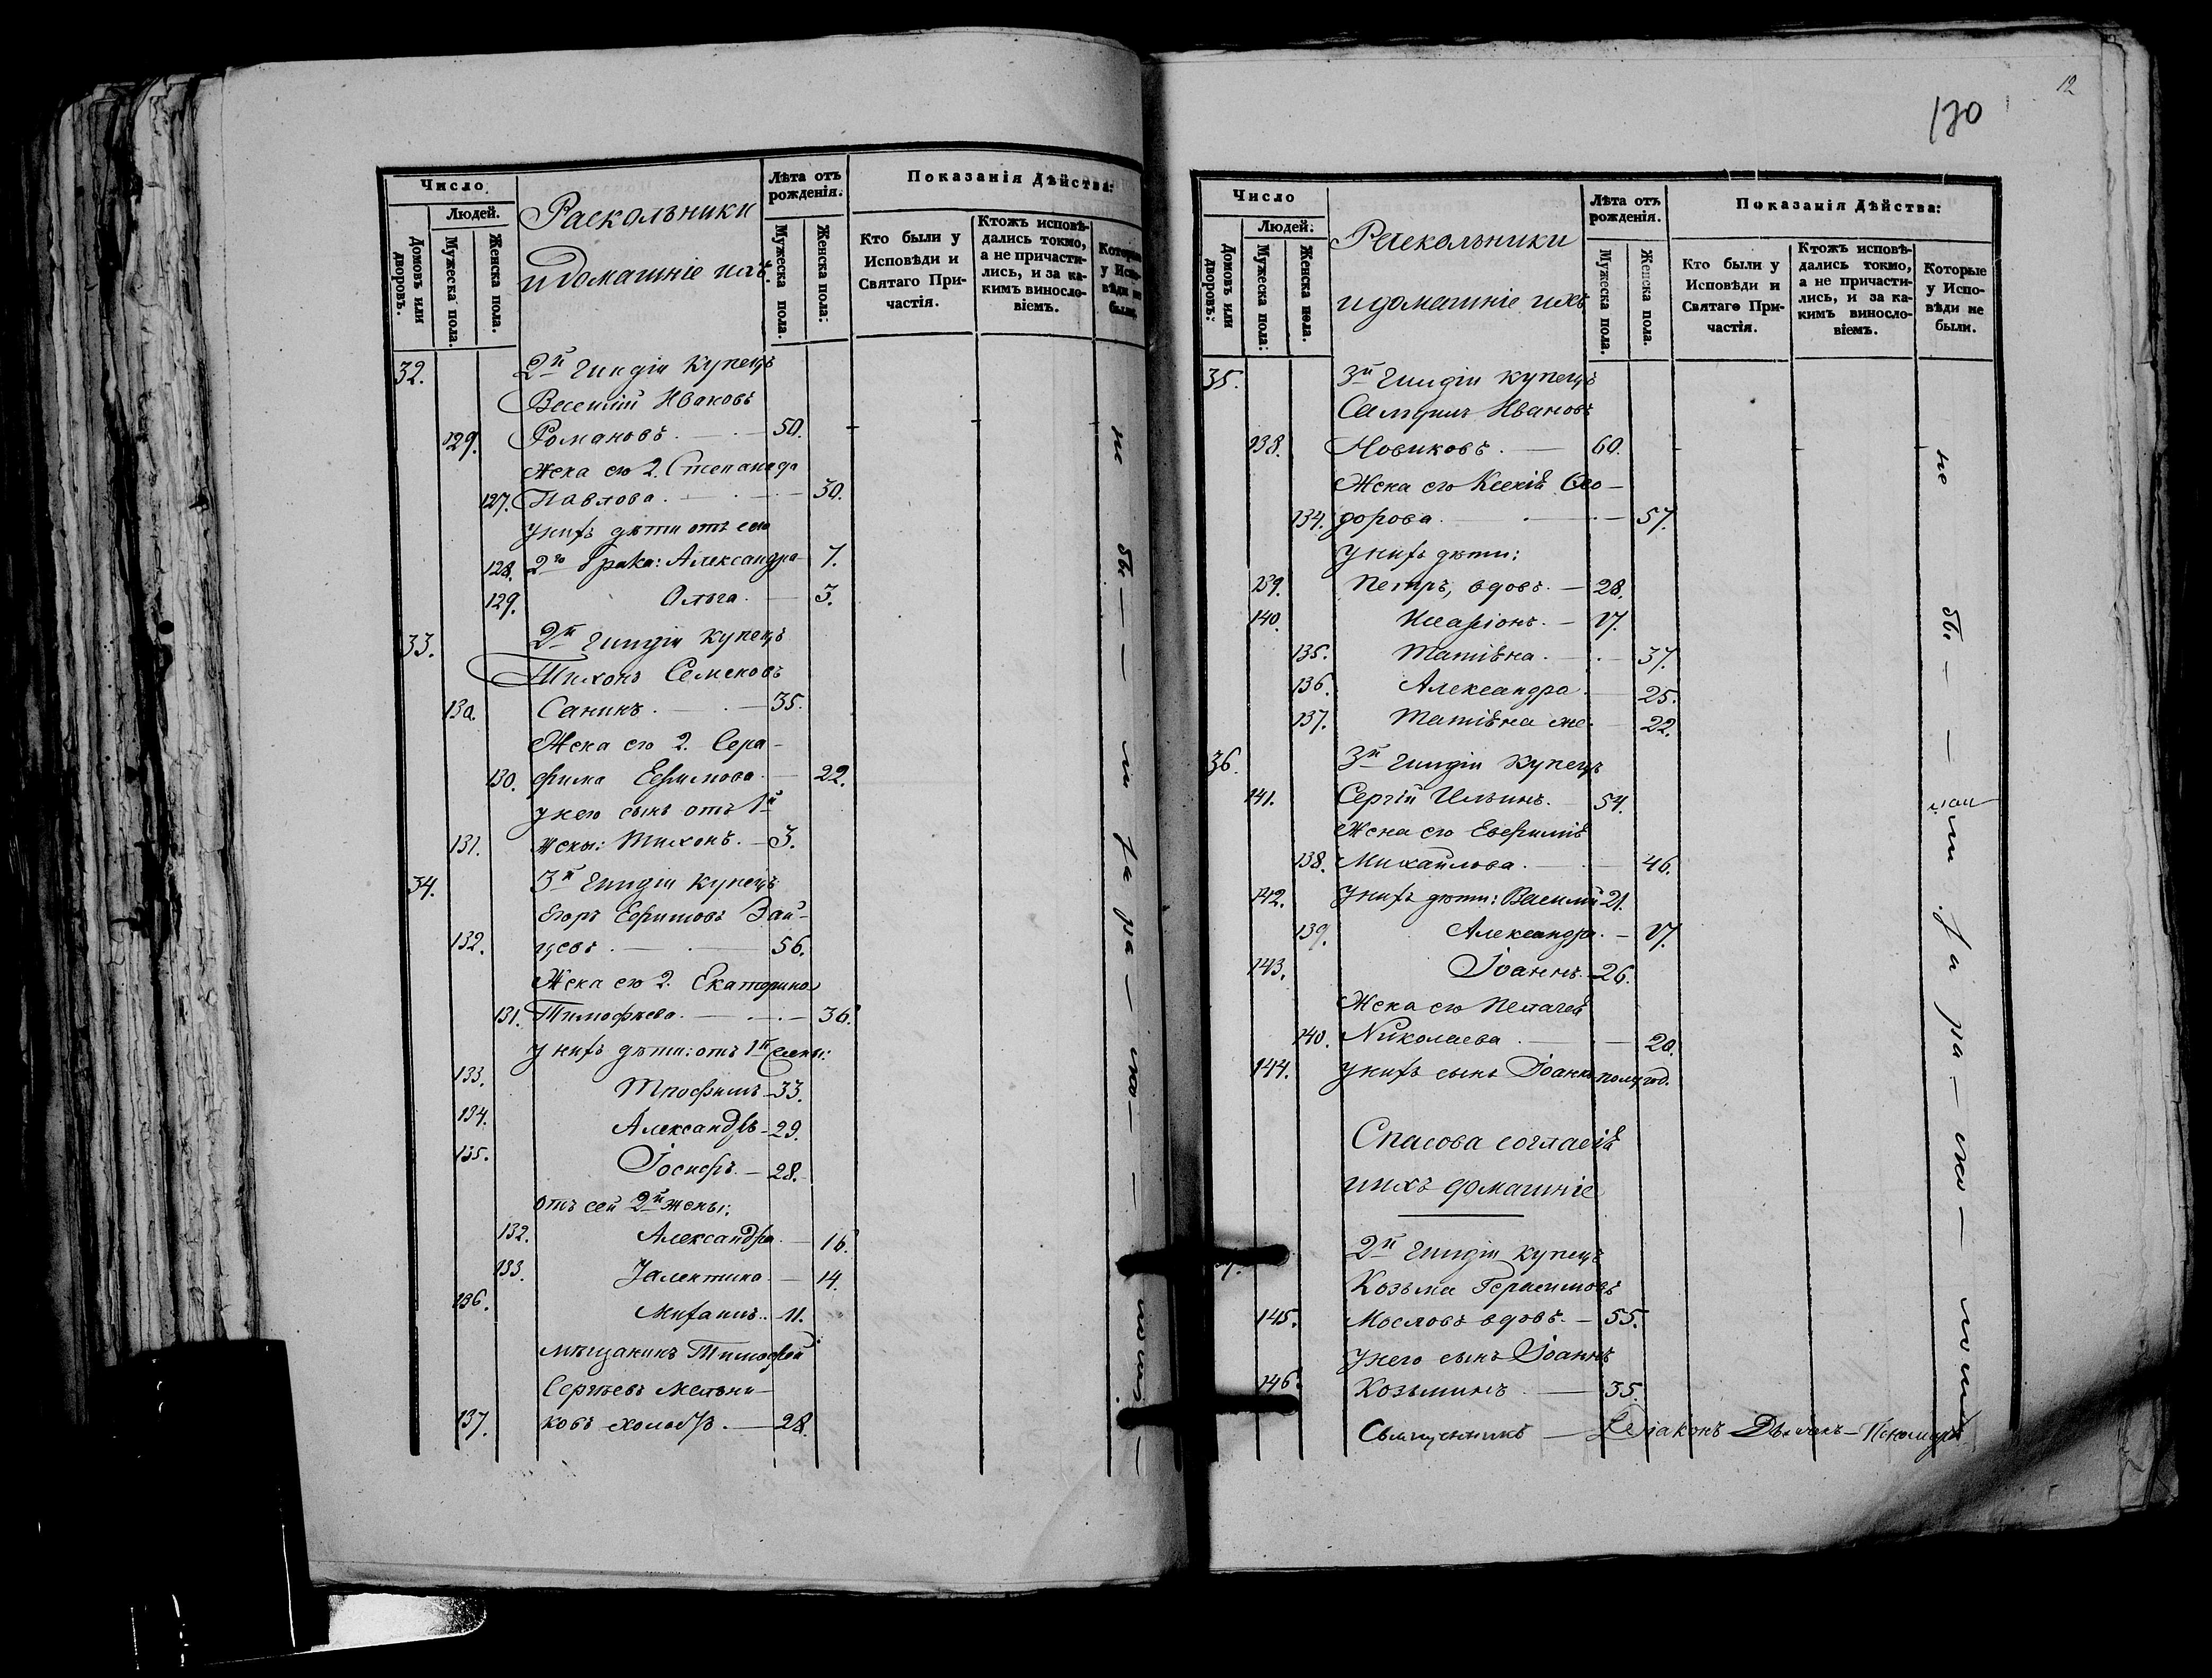 12
130
Число
Людей.
Домовъ или дворовъ.
Мужеска пола.
Женска пола.
Раскольники
и домашніе ихъ.
Лѣта отъ рожденія.
Мужеска пола.
Женска пола:
Показанія Дѣйства:
Кто были у Исповѣди и Святаго Причастія.
Ктожъ исповѣдались токмо, а не причастились, и за какимъ винословіемъ.
Которые у Исповѣди не были.
32. 2й Гильдіи Купецъ
Василій Ивановъ
129. Романовъ. — 50.
Жена его 2. Степанида
127. Павлова. — 30.
у нихъ дѣти отъ сего
128. 2го брака: Александра 7.
129. Ольга. — 3.
33. 2й Гильдіи Купецъ
Тихонъ Семеновъ
130. Санинъ. — 35.
Жена его 2. Сера-
130. фима Ефимова. — 22.
у него сынъ отъ 1й
131. жены: Тихонъ. — 3.
34. 3й Гильдіи Купецъ
Егоръ Ефимовъ Зай-
132. цевъ. — 56.
Жена его 2. Екатерина
131. Тимофѣева. — 36.
у нихъ дѣти: отъ 1й жены:
133. Трофимъ — 33.
134. Александръ — 29.
135. Іосифъ. — 28.
отъ сей 2й жены:
132. Александра. — 16.
133. Валентина. — 14.
136. Михаилъ. 11.
мѣщанинъ Тимофей
Сергѣевъ Мельни-
137. ковъ холостъ. — 28.
не бы — — ли за рас — ко — —ломъ —
Число
Людей.
Домовъ или дворовъ:
Мужеска пола:
Женска пола.
Раскольники
и домашніе ихъ
Лѣта отъ рожденія.
Мужеска пола.
Женска пола.
Показанія Дѣйства:
Кто были у Исповѣди и Святаго Причастія.
Ктожъ исповѣдались токмо, а не причастились, и за какимъ винословіемъ.
Которые у Исповѣди не были.
35. 3й Гильдіи Купецъ
Самуилъ Ивановъ
138. Новиковъ. — 60.
Жена его Ксенія Ѳео-
134. дорова. — 57.
у нихъ дѣти:
139. Петръ, вдовъ. — 28.
140. Иларіонъ. — 17.
135. Татіяна. — 37.
136. Александра. 25.
137. Татіяна же. 22.
36. 3й Гильдіи Купецъ
141. Сергій Ильинъ. 54.
Жена его Евфимія
138. Михайлова. — 46.
142. у нихъ дѣти: Василій 21.
139. Александра. — 17.
143. Іоаннъ. — 26.
Жена его Пелагея
140. Николаева. — 20.
144. у нихъ сынъ Іоаннъ полугод.
Спасова согласія
и ихъ домашніе
2й Гильдіи Купецъ
Козьма Герасимовъ
145. Мословъ вдовъ. — 55.
у него сынъ Іоаннъ
146. Козьминъ — 35.
не бы — — ли за рас — ко — ломъ
Священникъ — Діаконъ Дьячекъ — Пономарь